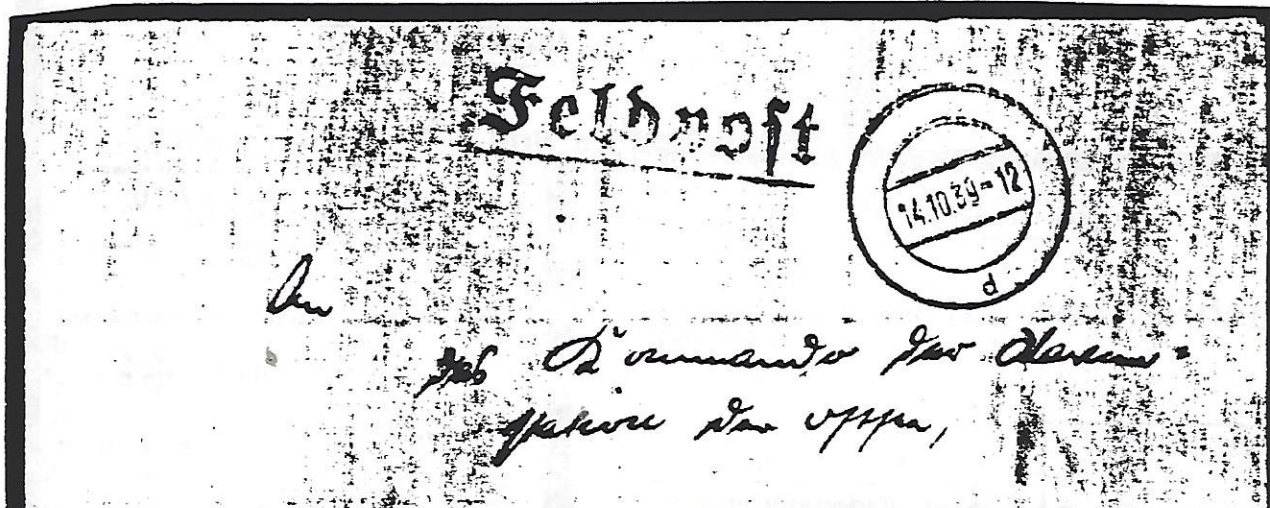 Feldpost
14.10.39-12
d
An
das Kommando der Marine=
station der Ostsee,